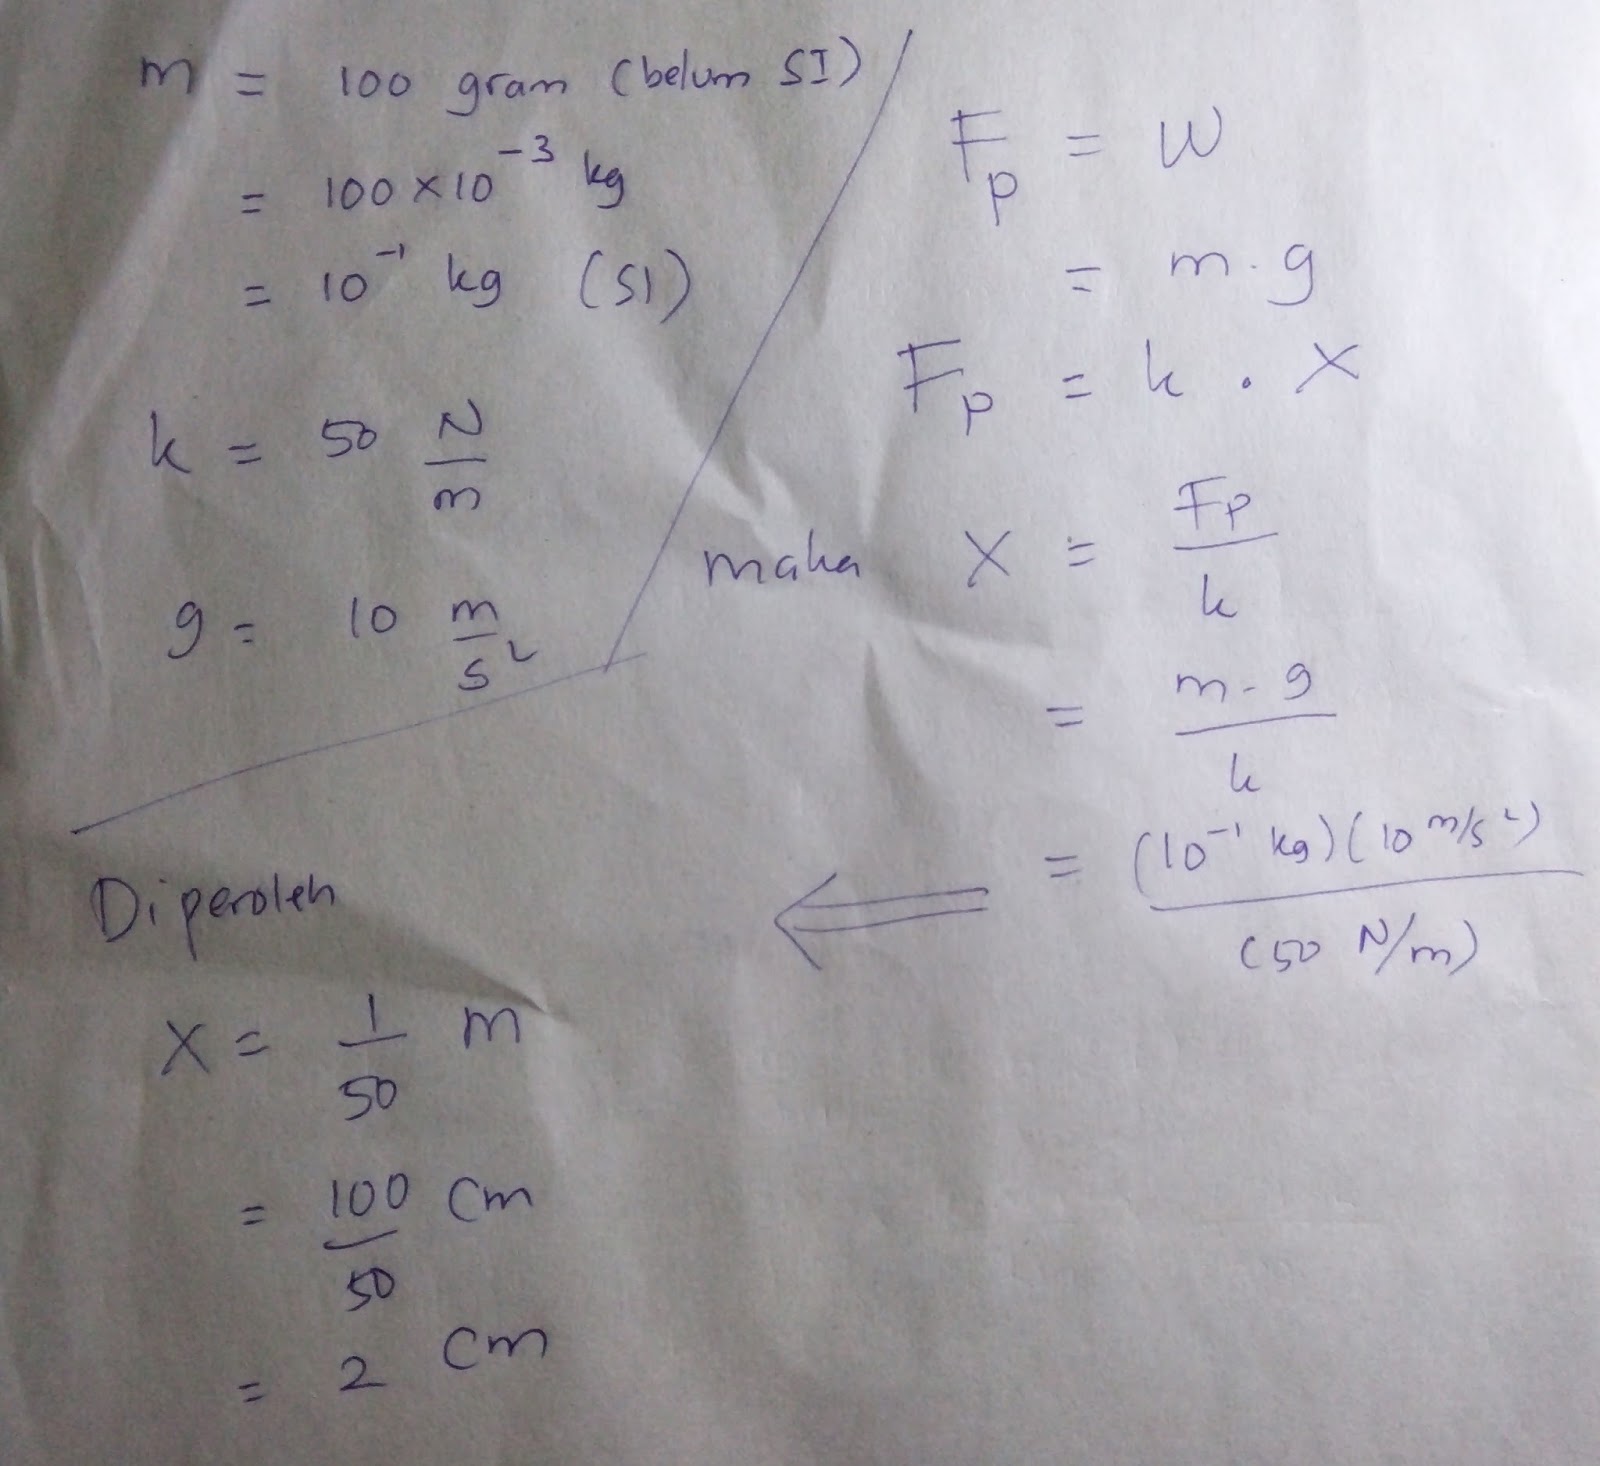 m = 100 gram (belum SI)
= 100 × 10⁻³ kg
= 10⁻¹ kg (SI)
k = 50 N/m
g = 10 m/s²
Fp = W
= m . g
Fp = k . X
maka X = Fp/k
= m . g/k
= (10⁻¹ kg)(10 m/s²)/(50 N/m)
⇐
Diperoleh
X = 1/50 m
= 100/50 cm
= 2 cm